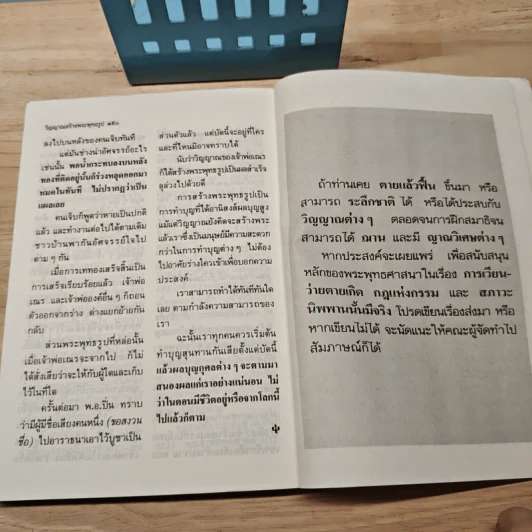 วิญญาณสร้างพระพุทธรูป ๑๕๐
ลงไปบนหลังของคนเจ็บทันที
แต่มันช่างน่าอัศจรรย์อะไร
เช่นนั้น พอน้ำกระทบลงบนหลัง
ทองที่ติดอยู่นั้นก็ร่วงหลุดออกมา
หมดในทันที ไม่ปรากฏว่าเป็น
แผลเลย
คนเจ็บก็พูดว่าหายเป็นปกติ
แล้ว และทำงานต่อไปได้ตามเดิม
ชาวบ้านพากันอัศจรรย์ใจไป
ตาม ๆ กัน
เมื่อการเททองเสร็จสิ้นเป็น
การเสร็จเรียบร้อยแล้ว เจ้าพ่อ
เณร และเจ้าพ่อองค์อื่น ๆ ก็ถอน
ตัวออกจากร่าง ต่างแยกย้ายกัน
กลับ
ส่วนพระพุทธรูปที่หล่อนั้น
เมื่อเจ้าพ่อเณรจะจากไป ก็ไม่
ได้สั่งเสียว่าจะให้กับผู้ใดและเก็บ
ไว้ในที่ใด
ครั้นต่อมา พ.อ.ปิ่น ทราบ
ว่ามีผู้มีชื่อเสียงคนหนึ่ง (ขอสงวน
ชื่อ) ไปอาราธนาเอาไว้บูชาเป็น
ส่วนตัวแล้ว แต่บัดนี้จะอยู่ที่ใคร
และที่ไหนมิอาจทราบได้
นับว่าวิญญาณของเจ้าพ่อเณร
ก็ได้สร้างพระพุทธรูปเป็นผลสำเร็จ
ลุล่วงไปด้วยดี
การสร้างพระพุทธรูปเป็น
การทำบุญที่ได้อานิสงส์ผลบุญสูง
แม้แต่วิญญาณยังคิดจะสร้างพระ
แล้วเราซึ่งเป็นมนุษย์มีความสะดวก
กว่าในการทำบุญต่าง ๆ ไม่ต้อง
ไปอาศัยร่างใครเข้าเพื่อบอกความ
ประสงค์
เราสามารถทำได้ทันทีทันใด
เลย ตามกำลังความสามารถของ
เรา
ฉะนั้นเราทุกคนควรเริ่มต้น
ทำบุญสุนทานกันเสียตั้งแต่บัดนี้
แล้วผลบุญกุศลต่าง ๆ จะตามมา
สนองผลแก่เราอย่างแน่นอน ไม่
ว่าในตอนมีชีวิตอยู่หรือจากโลกนี้
ไปแล้วก็ตาม
ถ้าท่านเคย ตายแล้วฟื้น ขึ้นมา หรือ
สามารถ ระลึกชาติ ได้ หรือได้ประสบกับ
วิญญาณต่าง ๆ ตลอดจนการฝึกสมาธิจน
สามารถได้ ฌาน และมี ญาณวิเศษต่าง ๆ
หากประสงค์จะเผยแพร่ เพื่อสนับสนุน
หลักของพระพุทธศาสนาในเรื่อง การเวียน-
ว่ายตายเกิด กฎแห่งกรรม และ สภาวะ
นิพพานนั้นมีจริง โปรดเขียนเรื่องส่งมา หรือ
หากเขียนไม่ได้ จะนัดแนะให้คณะผู้จัดทำไป
สัมภาษณ์ก็ได้